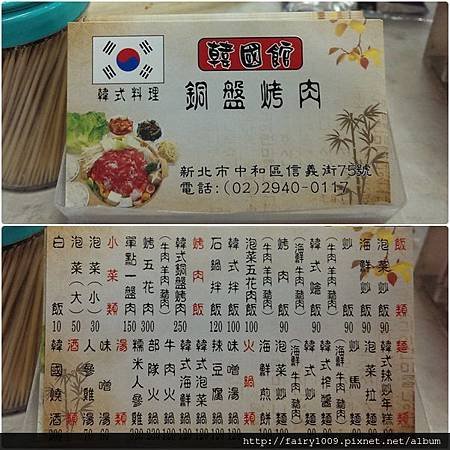 韓國館
韓式料理
銅盤烤肉
新北市中和區信義街75號
電話:(02)2940-0117
飯類
泡菜炒飯 90
海鮮炒飯 90
炒飯 90
(牛肉 羊肉 豬肉)
韓式燴飯
(海鮮 牛肉 豬肉)
烤肉飯 90
(牛肉 羊肉 豬肉)
泡菜五花肉飯 100
韓式拌飯 100
石鍋拌飯 120
烤肉類
韓式銅盤烤肉 250
(牛肉 羊肉 豬肉)
烤五花肉 300
單點一盤肉 150
小菜類
泡菜(小) 30
泡菜(大) 50
白飯 10
麵類
韓式辣炒年糕
泡菜拉麵
炒馬麵
韓式榨醬麵
韓式炒麵
泡菜炒麵
海鮮煎餅
火鍋類
味噌湯鍋
辣豆腐鍋
韓式泡菜鍋
牛肉火鍋
部隊火鍋
糯米人參雞
湯類
味噌湯
人參雞湯
酒類
韓國燒酒
http://fairy1009.pixnet.net/album